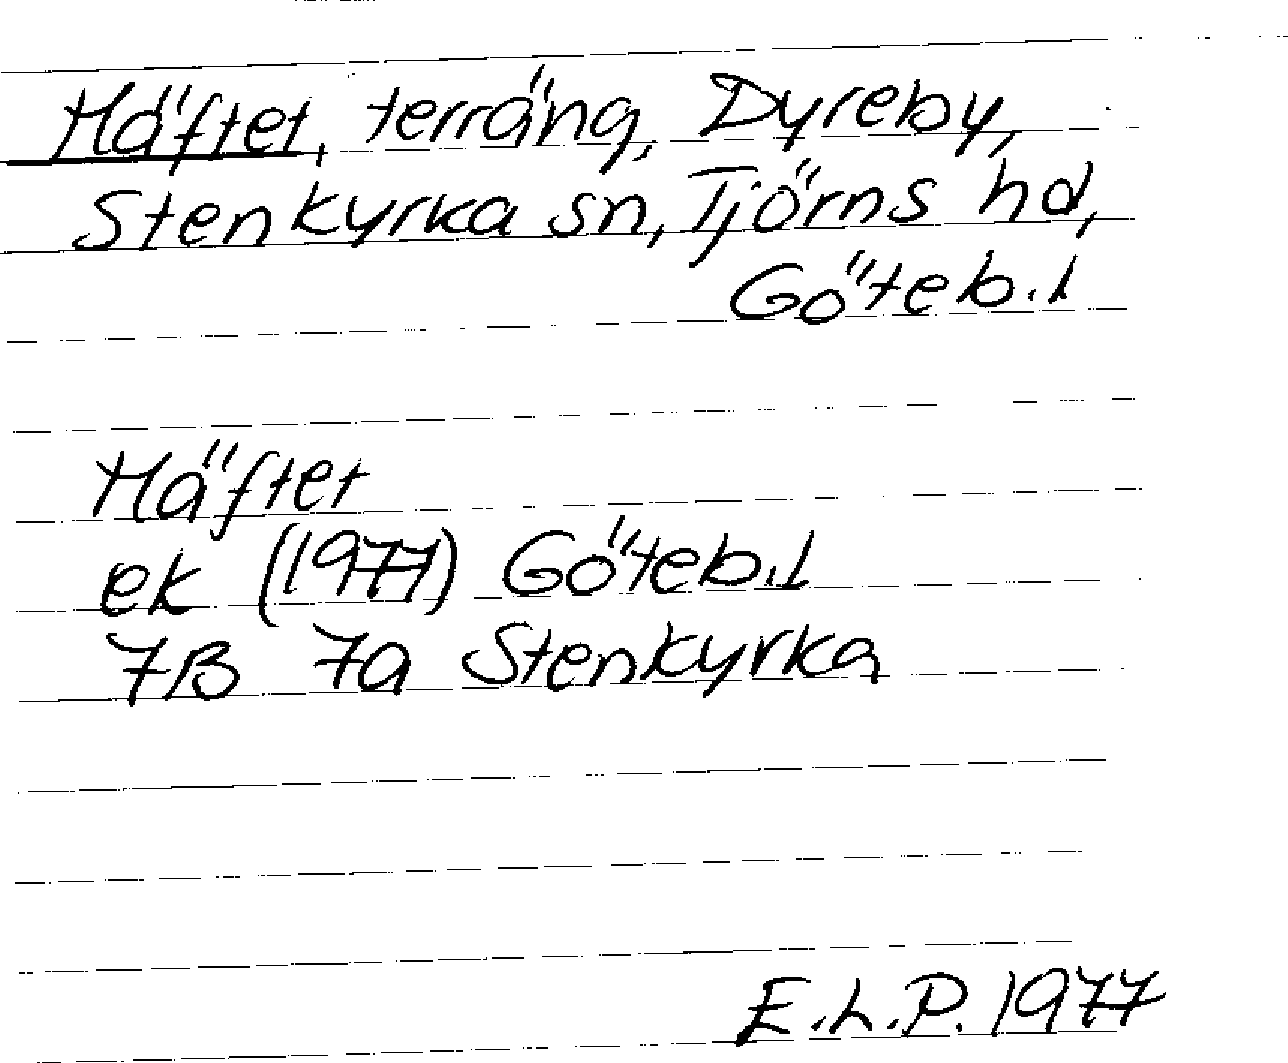 Häftet, terräng, Dyreby,
Stenkyrka sn, Tjörns hd,
Göteb.l
Häftet
ek (1977) Göteb.l
7B 7a Stenkyrka
E.L.P. 1977